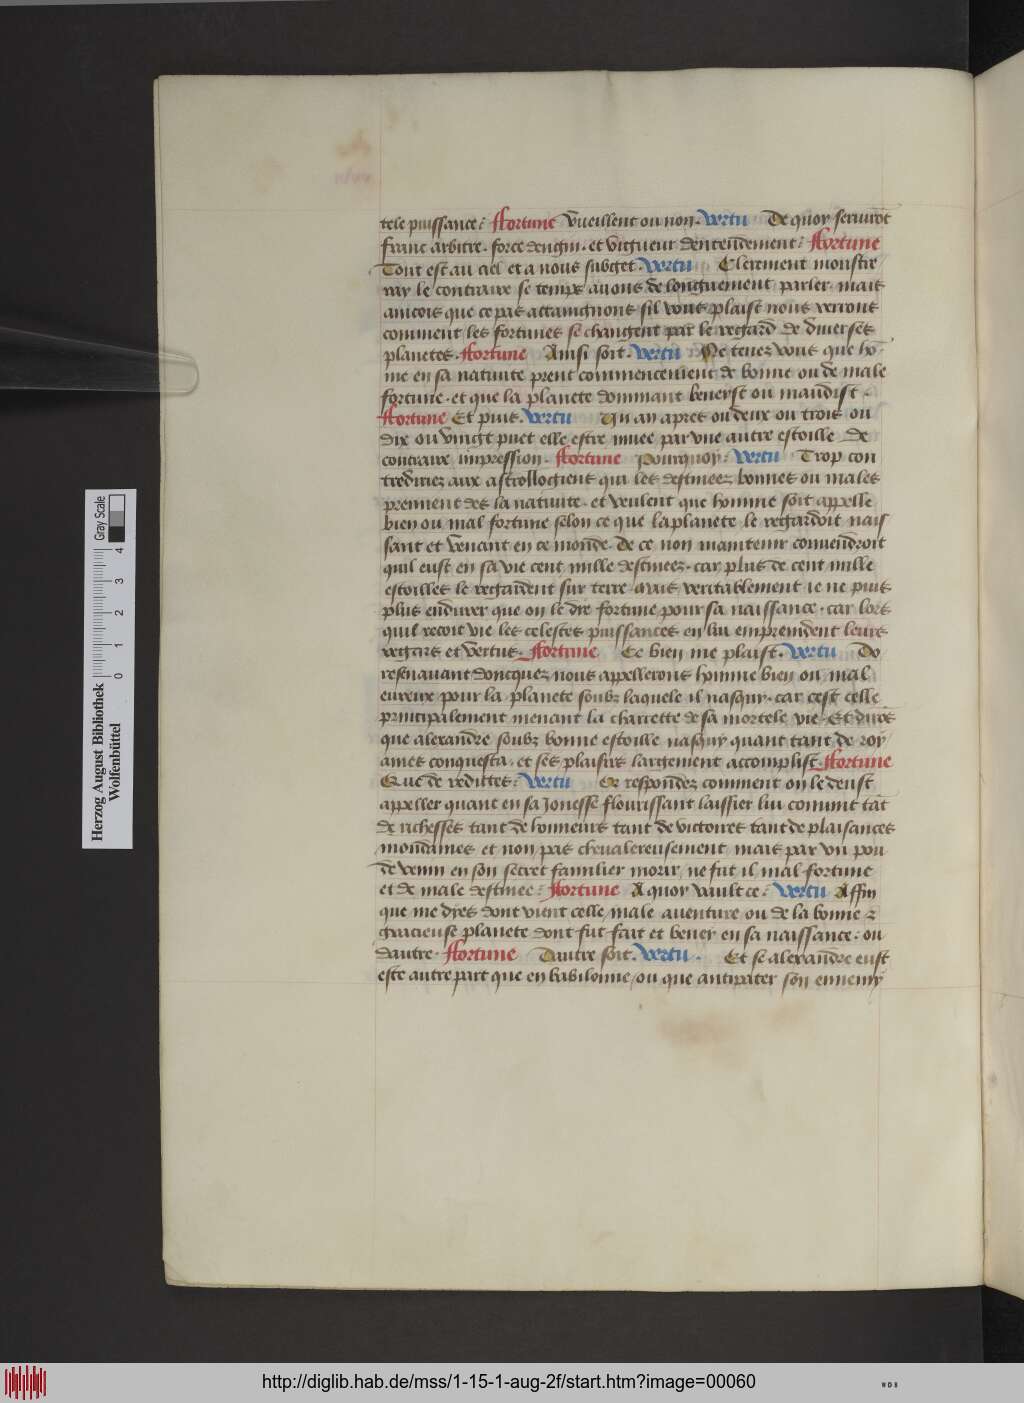 tele puissance: ffortune Vueillent ou non. Vertu De quoy seruirōt
franc arbitre. force dengin. et vigueur dentendement: ffortune
Tout est au ciel et a nous subget. Vertu Clerement monstre
ray le contraire se temps auons de longuement parler. mais
aincois que ce pas attaingnons sil vous plaist nous verrons
comment les fortunes se changent par le regard de diuerses
planetes. ffortune Ainsi soit. Vertu Ne tenez vous que hō
me en sa natiuite prent commencement de bonne ou de male
fortune. et que la planete dominant beneyst ou maudist.
ffortune Et puis. Vertu Un an apres ou deux ou trois ou
dix ou vingt puet elle estre muee par vne autre estoille de
contraire impression. ffortune Pourquoy: Vertu Trop con
trediriez aux astrollogiens qui les destinees bonnes ou males
prennent des la natiuite. et veulent que homme soit appelle
bien ou mal fortune selon ce que la planete le regardoit nais
sant et venant en ce monde. De ce non maintenir conuendroit
quil eust en sa vie cent mille destinees. car plus de cent mille
estoilles le regardent sur terre. mais veritablement ie ne puis
plus endurer que on le die fortune pour sa naissance. car lors
quil recoit vie les celestes puissances en lui empreindent leurs
regars et vertus. ffortune Ce bien me plaist. Vertu Do
resenauant doncquez nous appellerons homme bien ou mal
eureux pour la planete soubz laquele il nasquy. car cest celle
principalement menant la charrette de sa mortele vie. Et dirōs
que alexandre soubz bonne estoille nasquy quant tant de roy
ames conquesta. et ses plaisirs largement accomplist. ffortune
Que de redittes: Vertu Or respondez comment on le deust
appeller quant en sa Jonesse flourissant laissier lui conuint tāt
de richesses tant de honneurs tant de victoires tant de plaisances
mondaines et non pas cheualereusement mais par vn pou
de venin en son secret familier morir, ne fut il mal fortune
et de male destinee: ffortune A quoy vault ce: Vertu Affin
que me dyes dont vient celle male auenture ou de la bonne z
gracieuse planete dont fut fait et beney en sa naissance: ou
dautre. ffortune Dautre soit. Vertu. Et se alexandre eust
este autre part que en babilonne, ou que antipater son ennemy
Herzog August Bibliothek
Wolfenbüttel
0 1 2 3 4
Gray Scale
http://diglib.hab.de/mss/1-15-1-aug-2f/start.htm?image=00060
WDB